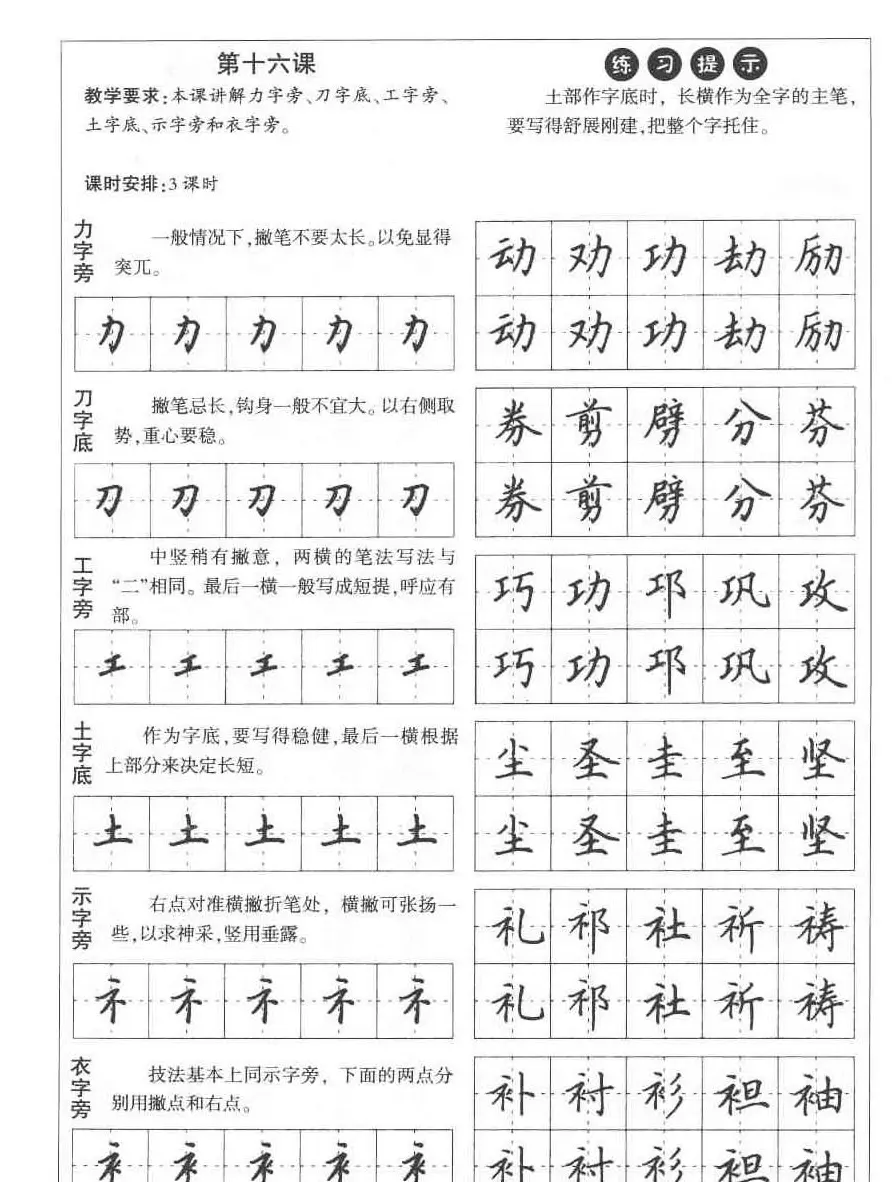 第十六课
教学要求：本课讲解力字旁、刀字底、工字旁、
土字底、示字旁和衣字旁。
课时安排：3课时
练习提示
土部作字底时，长横作为全字的主笔，
要写得舒展刚建，把整个字托住。
力字旁
一般情况下，撇笔不要太长。以免显得
突兀。
力 力 力 力 力
动 劝 功 劫 励
动 劝 功 劫 励
刀字底
撇笔忌长，钩身一般不宜大。以右侧取
势，重心要稳。
刀 刀 刀 刀 刀
券 剪 劈 分 芬
券 剪 劈 分 芬
工字旁
中竖稍有撇意，两横的笔法写法与
“二”相同。最后一横一般写成短提，呼应有
部。
工 工 工 工 工
巧 功 邛 巩 攻
巧 功 邛 巩 攻
土字底
作为字底，要写得稳健，最后一横根据
上部分来决定长短。
土 土 土 土 土
尘 圣 圭 至 坚
尘 圣 圭 至 坚
示字旁
右点对准横撇折笔处，横撇可张扬一
些，以求神采，竖用垂露。
礻 礻 礻 礻 礻
礼 祁 社 祈 祷
礼 祁 社 祈 祷
衣字旁
技法基本上同示字旁，下面的两点分
别用撇点和右点。
衤 衤 衤 衤 衤
补 衬 衫 袒 袖
补 衬 衫 袒 袖